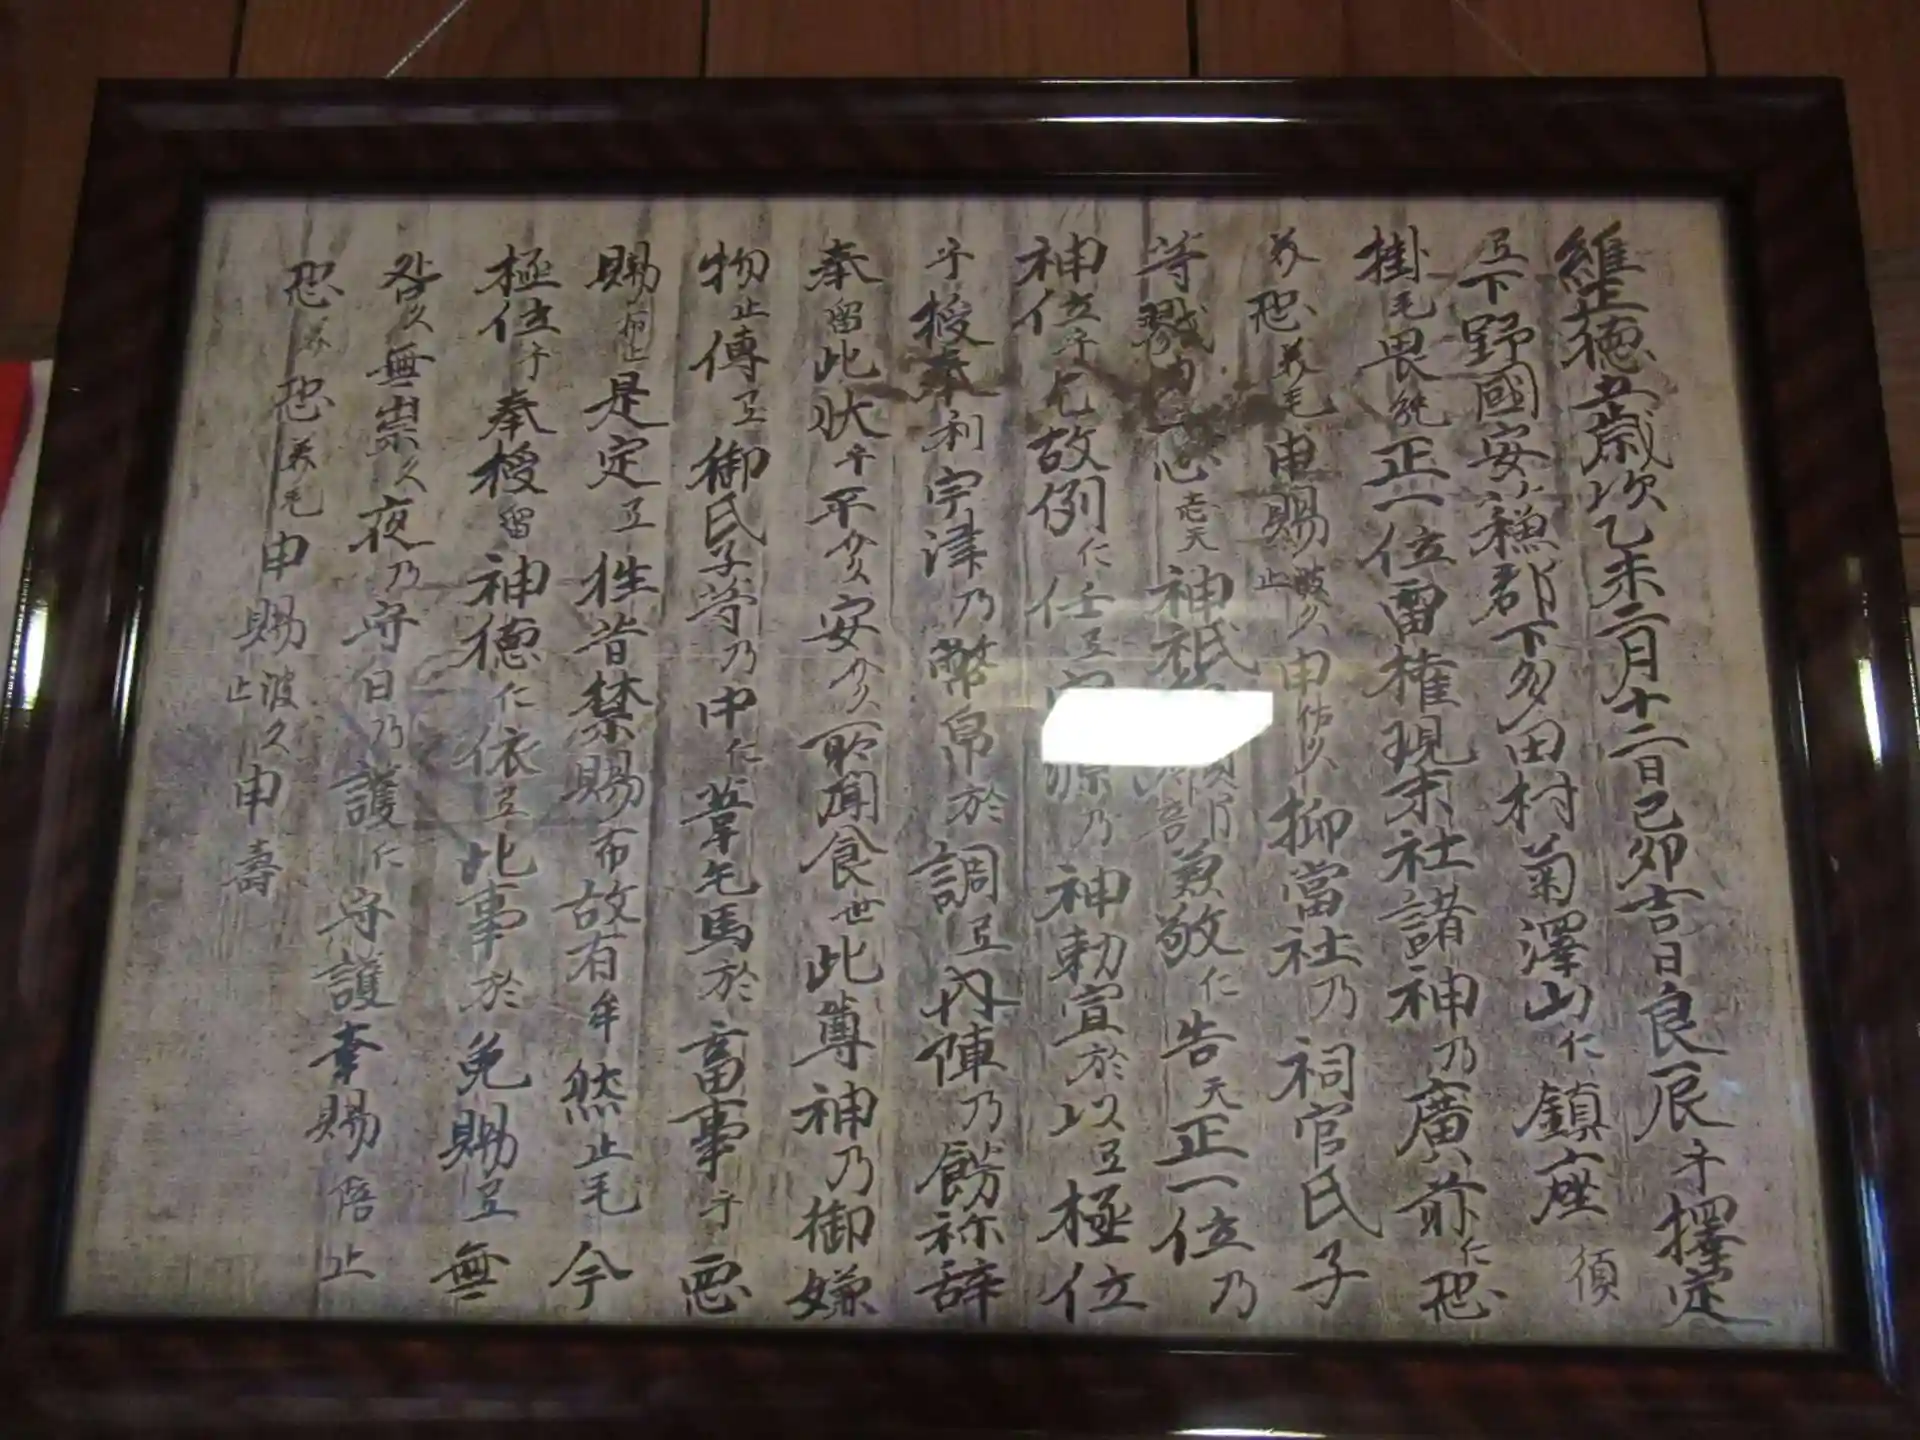 維正徳五歳次乙未二月十二日己卯吉日良辰乎擇定
弖下野國安蘓郡下多田村菊澤山仁鎮座須
掛毛畏能正一位雷権現末社諸神乃廣前仁恐
美恐美毛申賜波久止申佐久抑當社乃祠官氏子
等 志天神祇 兼敬仁告天正一位乃
神位乎 故例仁任弖 乃神勅宣於以弖極位
乎授奉利宇津乃幣帛於調弖内陣乃餝祢辞
奉留此状乎平介久安介久所聞食世此尊神乃御嫌
物止傳弖御氏子等乃中仁葦毛馬於畜事乎悪
賜 止是定弖往昔禁賜布故有牟然止毛今
極位乎奉授留神徳仁依弖此事於免賜弖無
咎久無祟久夜乃守日乃護仁守護幸賜倍止
恐美恐美毛申賜波久止申壽